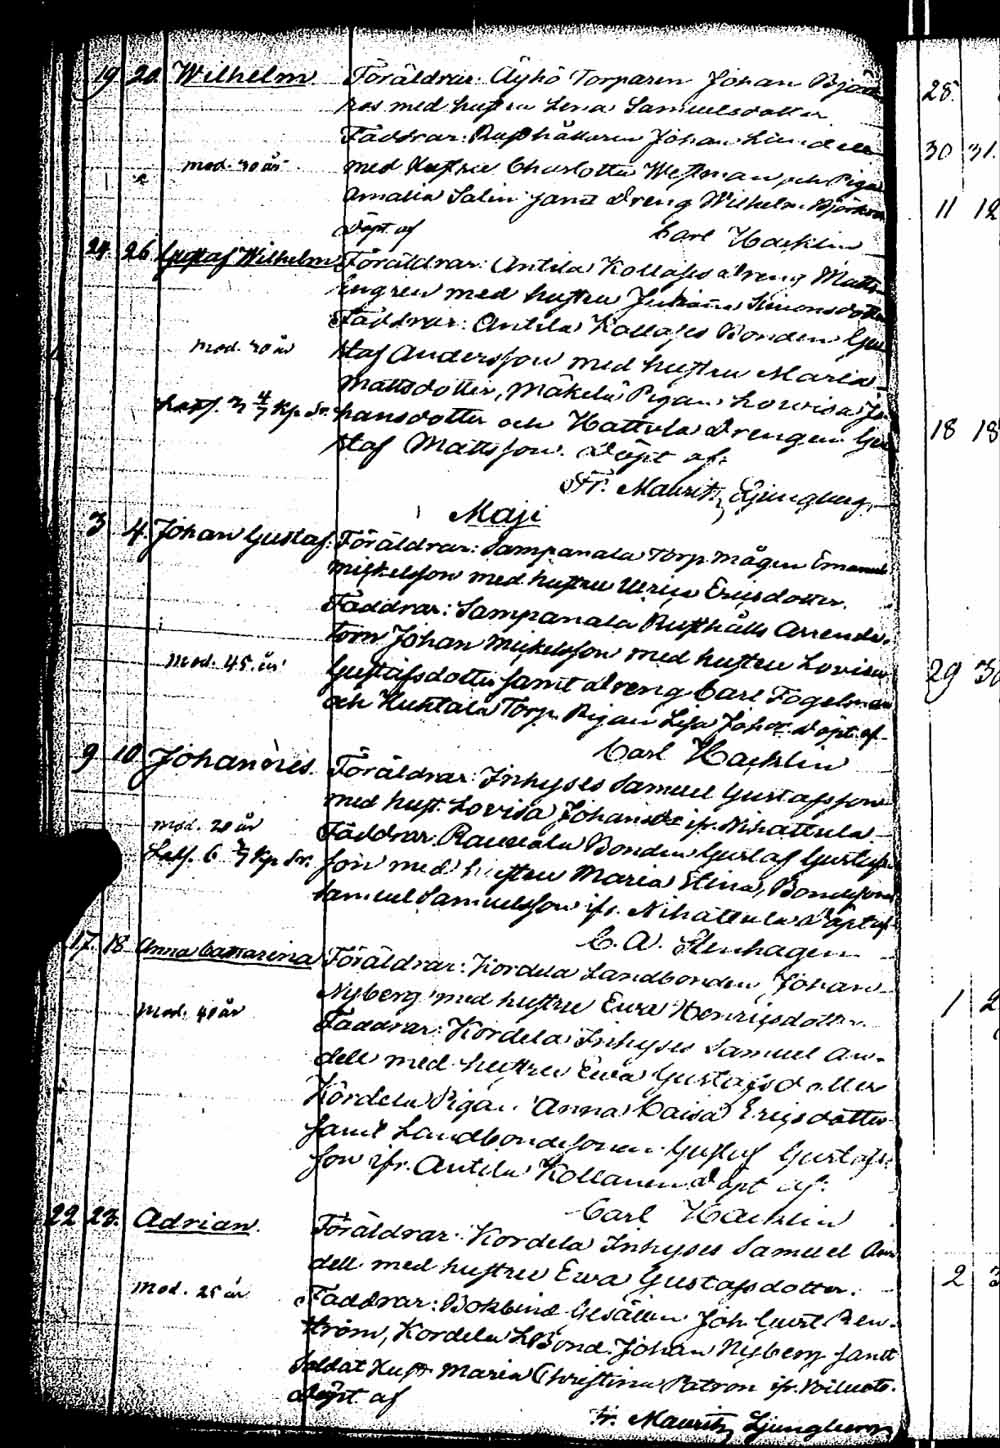 19 20 Wilhelm Föräldrar: Äyhö Torparen Johan Björk
ros med hustru Lena Samuelsdotter
Faddrar: Rusthållaren Johan Lindell
mod. 30 år med Hustru Charlotta Westman och Pigan
Amalia Salin samt Dreng Wilhelm Björkros
Döpt af Carl Hacklin
24 26 Gustaf Wilhelm Föräldrar: Antila Kollasis drang Matts
ingren med hustru Juliana Simonsdotter
Faddrar: Antila Kollasis Bonden Gus
mod. 30 år staf Andersson med hustru Maria
Mattsdotter, Mäkelä Pigan Lovisa Jo
4/7 Kp Sr. hansdotter och Hattula drengen Gus
staf Mattsson. Döpt af:
Fr. Mauritz Ljungberg
Maji
3 4 Johan Gustaf. Föräldrar: Sampanala Torp. mågen Emanuel
Mickelsson med hustru Ulrica Ericsdotter.
Faddrar: Sampanala Rusthålls Arrenda
torn Johan Mickelsson med hustru Lovisa
mod. 45 år Gustafsdotter samt dreng Carl Fogelman
och Huhtala Torp. Pigan Lisa Johsdr. Döpt af
Carl Hacklin
9 10 Johannes. Föräldrar: Inhyses Samuel Gustafsson
med hust. Lovisa Johansdr ifr. Nihattula
mod. 28 år Faddrar: Rauvola Bonden Gustaf Gustafs
6 2/7 Kp Sr. son med hustru Maria Stina, Bondeson
Samuel Samuelsson ifr. Nihattula Döpt af
C. A. Stenhagen
17 18 Anna Catharina Föräldrar: Kordela Landbonden Johan
Nyberg med hustru Ewa Henricsdotter.
mod. 40 år Faddrar: Kordela Inhyses Samuel An-
dell med hustru Ewa Gustafsdotter
Kordela Pigan Anna Caisa Ericsdotter
samt Landbondesonen Gustaf Gustafs
son ifr. Antila Kollanen Döpt af:
Carl Hacklin
22 23. Adrian. Föräldrar: Kordela Inhyses Samuel An
dell med hustru Ewa Gustafsdotter.
mod. 25 år Faddrar: Bokbind. Gesällen Joh. Gust. Ren-
ström, Kordela LBond. Johan Nyberg samt
Soldat Hust. Maria Christina Patron ifr.
Döpt af
Fr. Mauritz Ljungberg
28.
30 31.
11 12
18 18
29 30
1 2
2 3